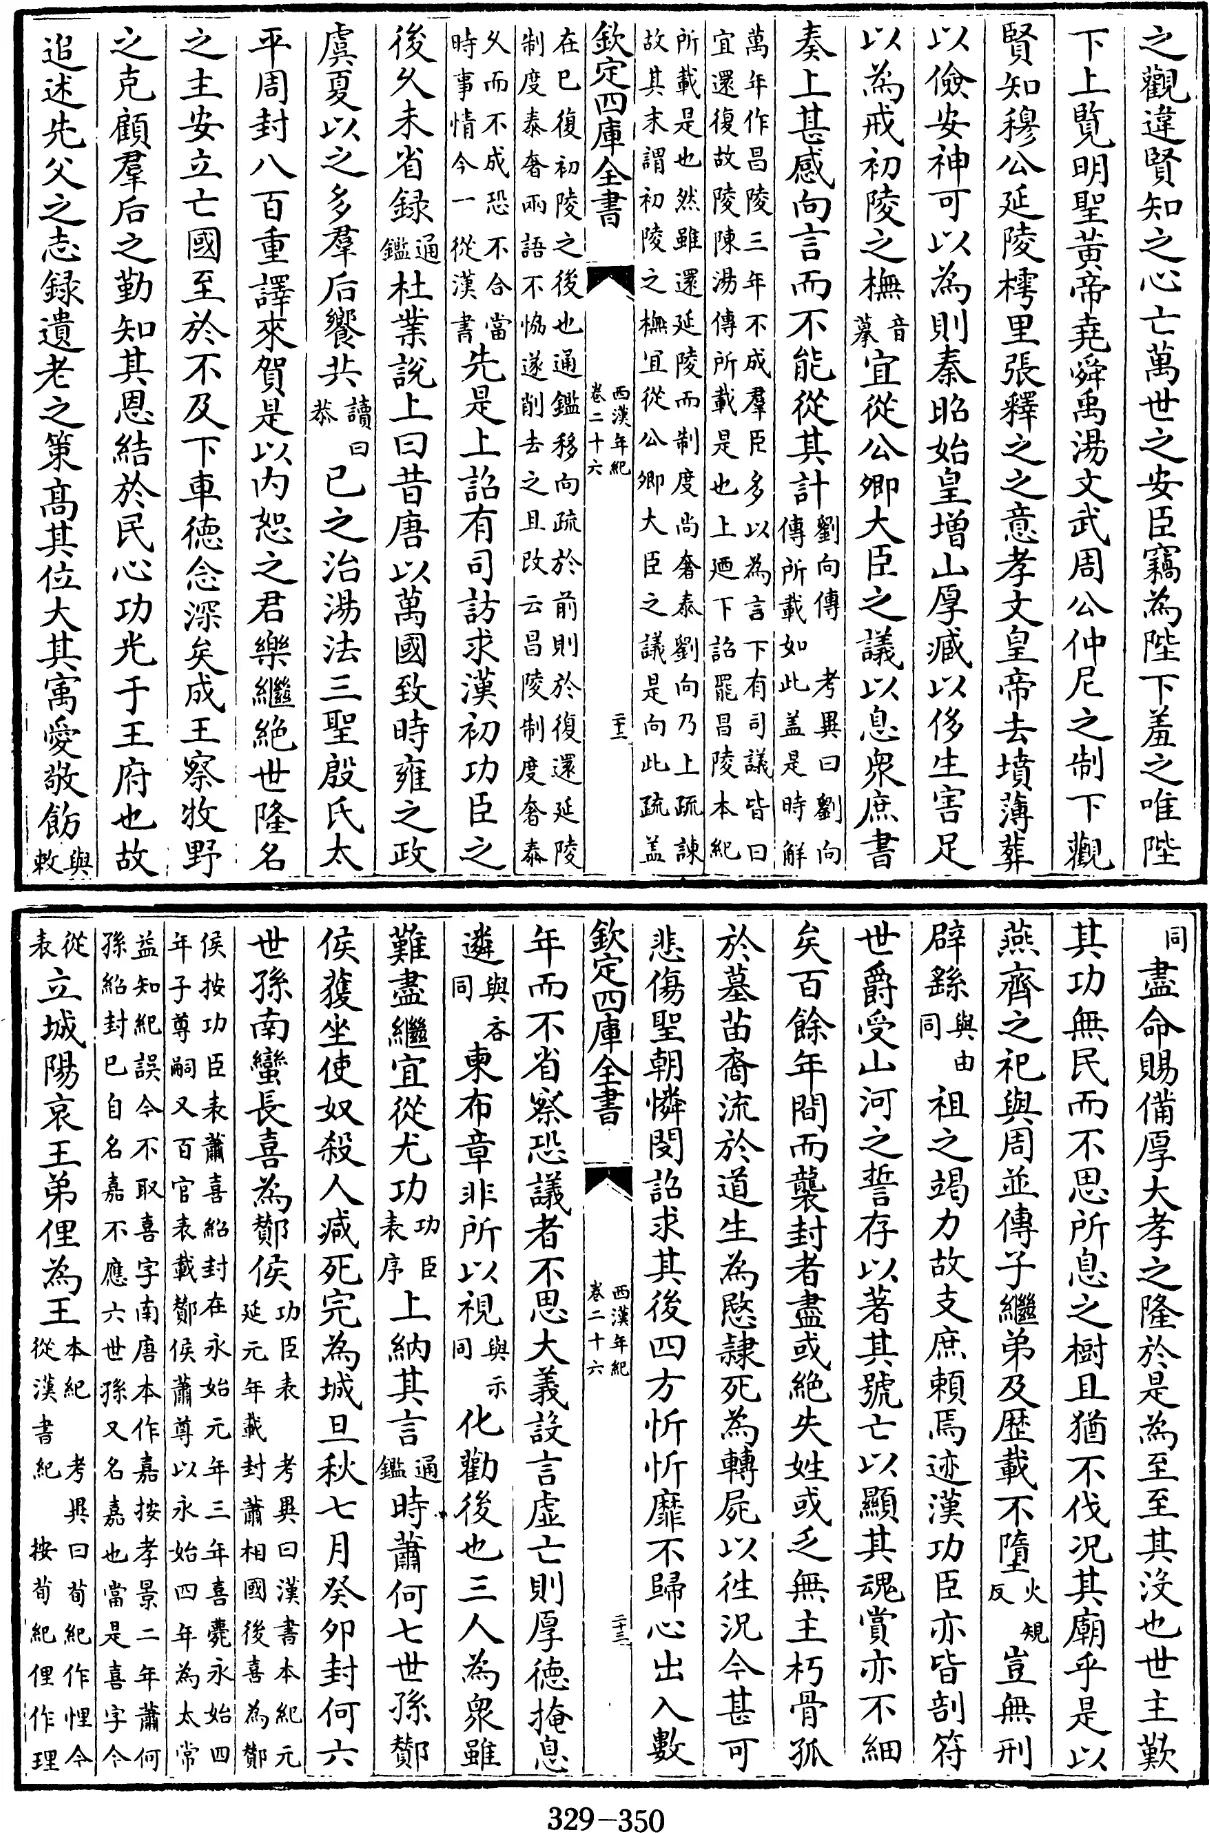 之觀違賢知之心亡萬世之安臣竊為陛下羞之唯陛
下上覽明聖黃帝堯舜禹湯文武周公仲尼之制下觀
賢知穆公延陵樗里張釋之之意孝文皇帝去墳薄葬
以儉安神可以為則秦昭始皇增山厚臧以侈生害足
以為戒初陵之橅音摹宜從公卿大臣之議以息衆庶書
奏上甚感向言而不能從其計劉向傳 考異曰劉向傳所載如此盖是時解
萬年作昌陵三年不成羣臣多以為言下有司議皆曰
宜還復故陵陳湯傳所載是也上廼下詔罷昌陵本紀
所載是也然雖還延陵而制度尚奢泰劉向乃上疏諫
故其末謂初陵之橅宜從公卿大臣之議是向此疏盖
欽定四庫全書 西漢年紀 卷二十六 二十二
在已復初陵之後也通鑑移向疏於前則於復還延陵
制度泰奢兩語不恊遂削去之且改云昌陵制度奢泰
久而不成恐不合當
時事情今一從漢書先是上詔有司訪求漢初功臣之
後久未省録通鑑杜業說上曰昔唐以萬國致時雍之政
虞夏以之多羣后饗共讀曰恭已之治湯法三聖殷氏太
平周封八百重譯來賀是以内恕之君樂繼絶世隆名
之主安立亡國至於不及下車德念深矣成王察牧野
之克顧羣后之勤知其恩結於民心功光于王府也故
追述先父之志録遺老之策高其位大其寓愛敬飭與敕
同盡命賜備厚大孝之隆於是為至至其沒也世主歎
其功無民而不思所息之樹且猶不伐况其廟乎是以
燕齊之祀與周並傳子繼弟及歴載不墮火規反豈無刑
辟繇與由同祖之竭力故支庶賴焉迹漢功臣亦皆剖符
世爵受山河之誓存以著其號亡以顯其魂賞亦不細
矣百餘年間而襲封者盡或絶失姓或乏無主朽骨孤
於墓苗裔流於道生為愍隷死為轉屍以徃況今甚可
悲傷聖朝憐閔詔求其後四方忻忻靡不歸心出入數
欽定四庫全書 西漢年紀 卷二十六 二十三
年而不省察恐議者不思大義設言虛亡則厚德掩息
遴與吝同柬布章非所以視與示同化勸後也三人為衆雖
難盡繼宜從尤功功臣表序上納其言通鑑時蕭何七世孫酇
侯獲坐使奴殺人减死完為城旦秋七月癸卯封何六
世孫南䜌長喜為酇侯功臣表 考異曰漢書本紀元延元年載封蕭相國後喜為酇
侯按功臣表蕭喜紹封在永始元年三年喜薨永始四
年子尊嗣又百官表載酇侯蕭尊以永始四年為太常
益知紀誤今不取喜字南唐本作嘉按孝景二年蕭何
孫紹封已自名嘉不應六世孫又名嘉也當是喜字今
從表立城陽哀王弟俚為王本紀 考異曰荀紀作悝今從漢書紀 按荀紀俚作理
329-350